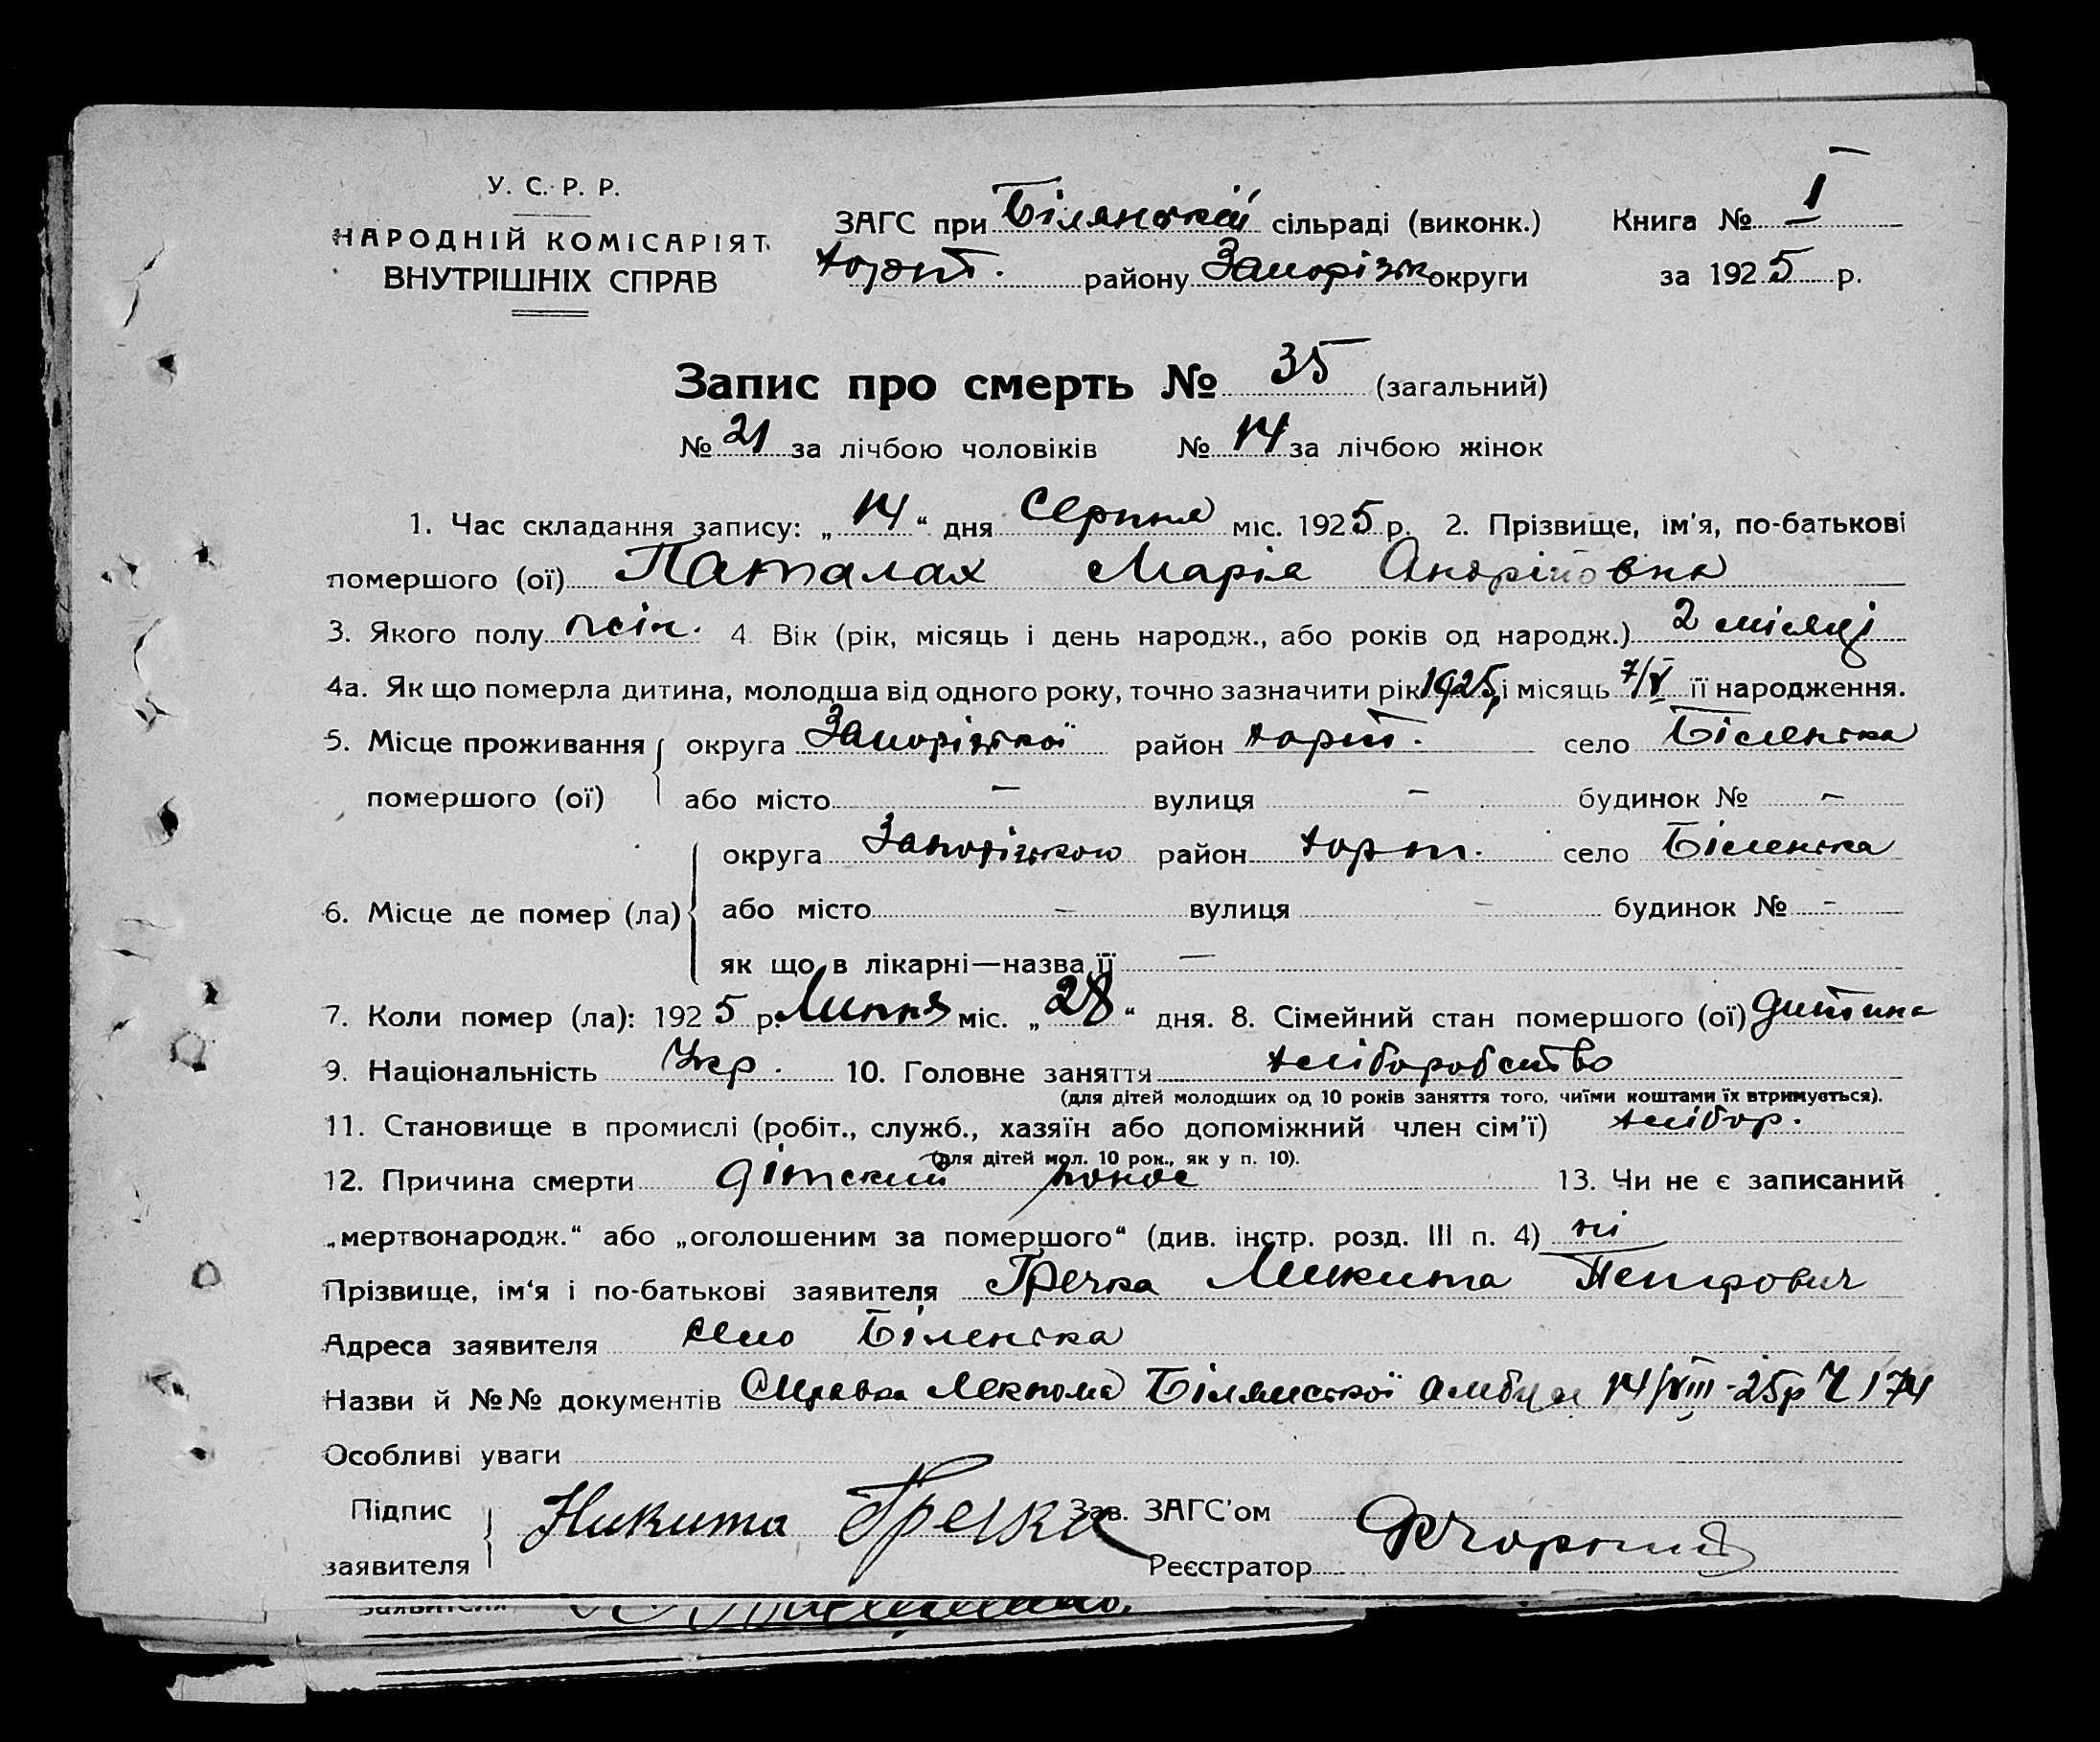 У. С. Р. Р.
НАРОДНІЙ КОМІСАРІЯТ
ВНУТРІШНІХ СПРАВ
ЗАГС при Білянській сільраді (виконк.) Книга № I
Хорт. району Запорізьк округи за 1925 р.
Запис про смерть № 35 (загальний)
№ 21 за лічбою чоловіків № 14 за лічбою жінок
1. Час складання запису: „14“ дня Серпня міс. 1925 р. 2. Прізвище, ім'я, по-батькові
помершого (ої) Паталах Марія Андріївна
3. Якого полу жін. 4. Вік (рік, місяць і день народж., або років од народж.) 2 місяці
4а. Як що померла дитина, молодша від одного року, точно зазначити рік 1925, і місяць 7/V її народження.
5. Місце проживання помершого (ої) округа Запорізької район Хорт. село Біленька
або місто — вулиця — будинок № —
6. Місце де помер (ла) округа Запорізькою район Хорт. село Біленька
або місто — вулиця — будинок № -
як що в лікарні—назва її —
7. Коли помер (ла): 1925 р. Липня міс. „28“ дня. 8. Сімейний стан помершого (ої) дитина
9. Національність Укр. 10. Головне заняття хліборобство
(для дітей молодших од 10 років заняття того, чиїми коштами їх втримується).
11. Становище в промислі (робіт., служб., хазяїн або допоміжний член сім'ї) хлібор.
(для дітей мол. 10 рок., як у п. 10).
12. Причина смерти дітский понос 13. Чи не є записаний
„мертвонародж.“ або „оголошеним за помершого“ (див. інстр. розд. III п. 4) ні
Прізвище, ім'я і по-батькові заявителя Гречка Микита Петрович
Адреса заявителя село Біленька
Назви й №№ документів Справка Лекпома Білянської 14/VIII-25р Ч 174
Особливі уваги
Підпис заявителя Никита Гречка Зав. ЗАГС'ом
Реєстратор
заявителя